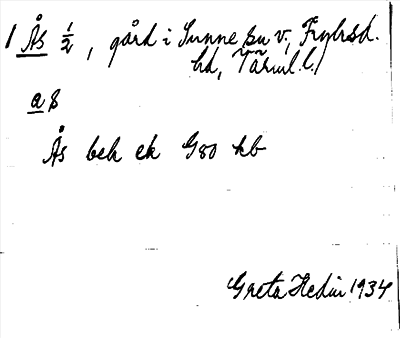 1 Ås ½, gård i Sunne sn v., Fryksd.
hd, Värml. l.
a 8
Ås bek ek G80 kb
Greta Hedin 1934